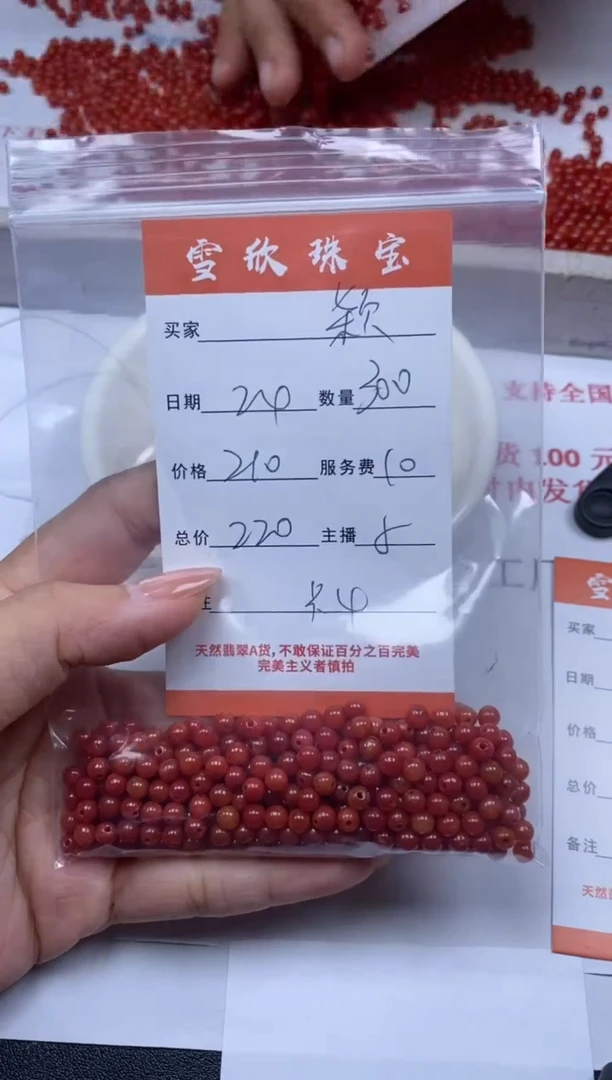 雪欣珠宝
买家 颖
日期 24 数量 300
价格 210 服务费 10
总价 220 主播 8
主 卡4
天然翡翠A货,不敢保证百分之百完美
完美主义者慎拍
支持全国
货 100 元
时内发货
工厂
雪
买家
日期
价格
总价
备注
天然